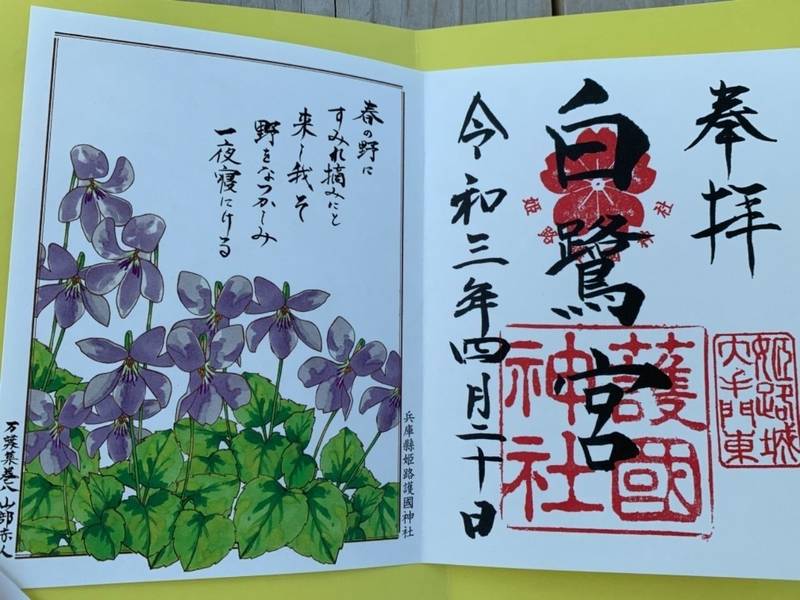 奉拝
姫路城
大手門東
白鷺宮
姫路
社
護國
神社
令和三年四月二十日
春の野に
すみれ摘みにと
来し我そ
野をなつかしみ
一夜寝にける
兵庫縣姫路護國神社
万葉集巻八 山部赤人